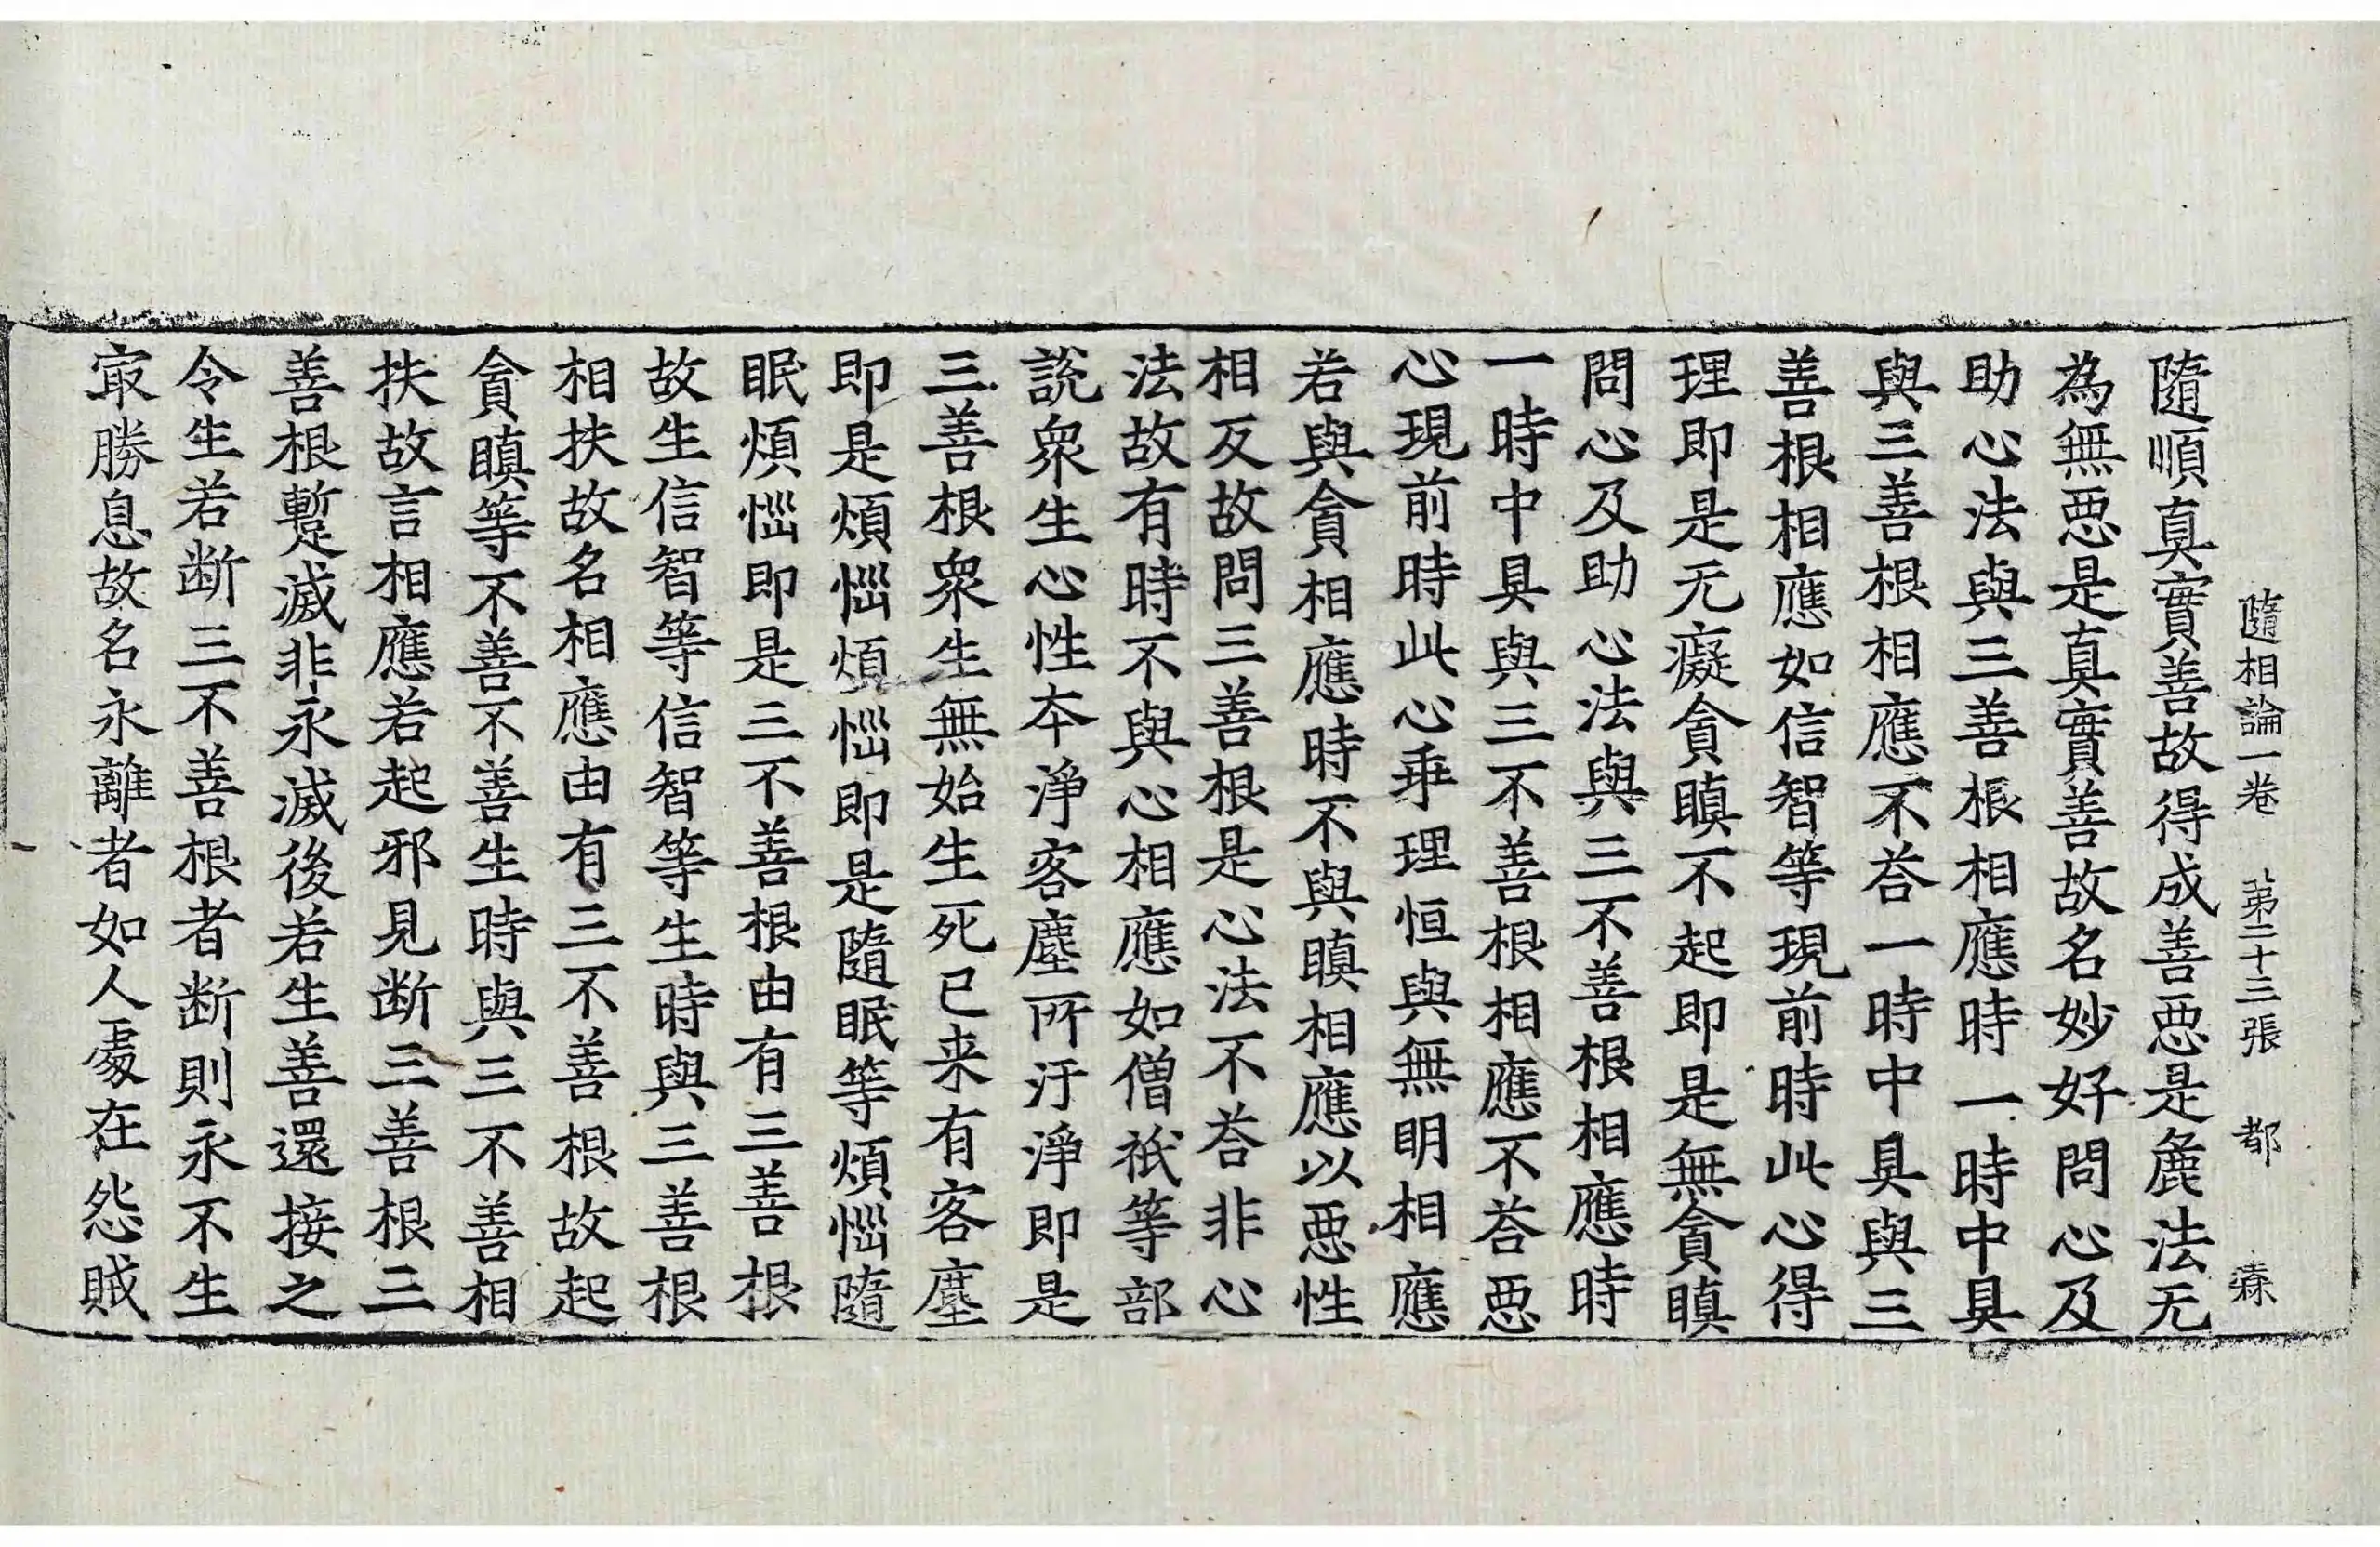 隨相論一卷 苐二十三張 都 㾕
隨順真實善故得成善惡是麁法无
為無惡是真實善故名妙好問心及
助心法與三善根相應時一時中具
與三善根相應不荅一時中具與三
善根相應如信智等現前時此心得
理即是无癡貪瞋不起即是無貪瞋
問心及助心法與三不善根相應時
一時中具與三不善根相應不荅惡
心現前時此心乖理恒與無明相應
若與貪相應時不與瞋相應以惡性
相反故問三善根是心法不荅非心
法故有時不與心相應如僧祇等部
說衆生心性本淨客塵所汙淨即是
三善根衆生無始生死已来有客塵
即是煩惱煩惱即是隨眠等煩惱隨
眠煩惱即是三不善根由有三善根
故生信智等信智等生時與三善根
相扶故名相應由有三不善根故起
貪瞋等不善不善生時與三不善相
扶故言相應若起邪見断三善根三
善根蹔滅非永滅後若生善還接之
令生若断三不善根者断則永不生
㝡勝息故名永離者如人處在怨賊